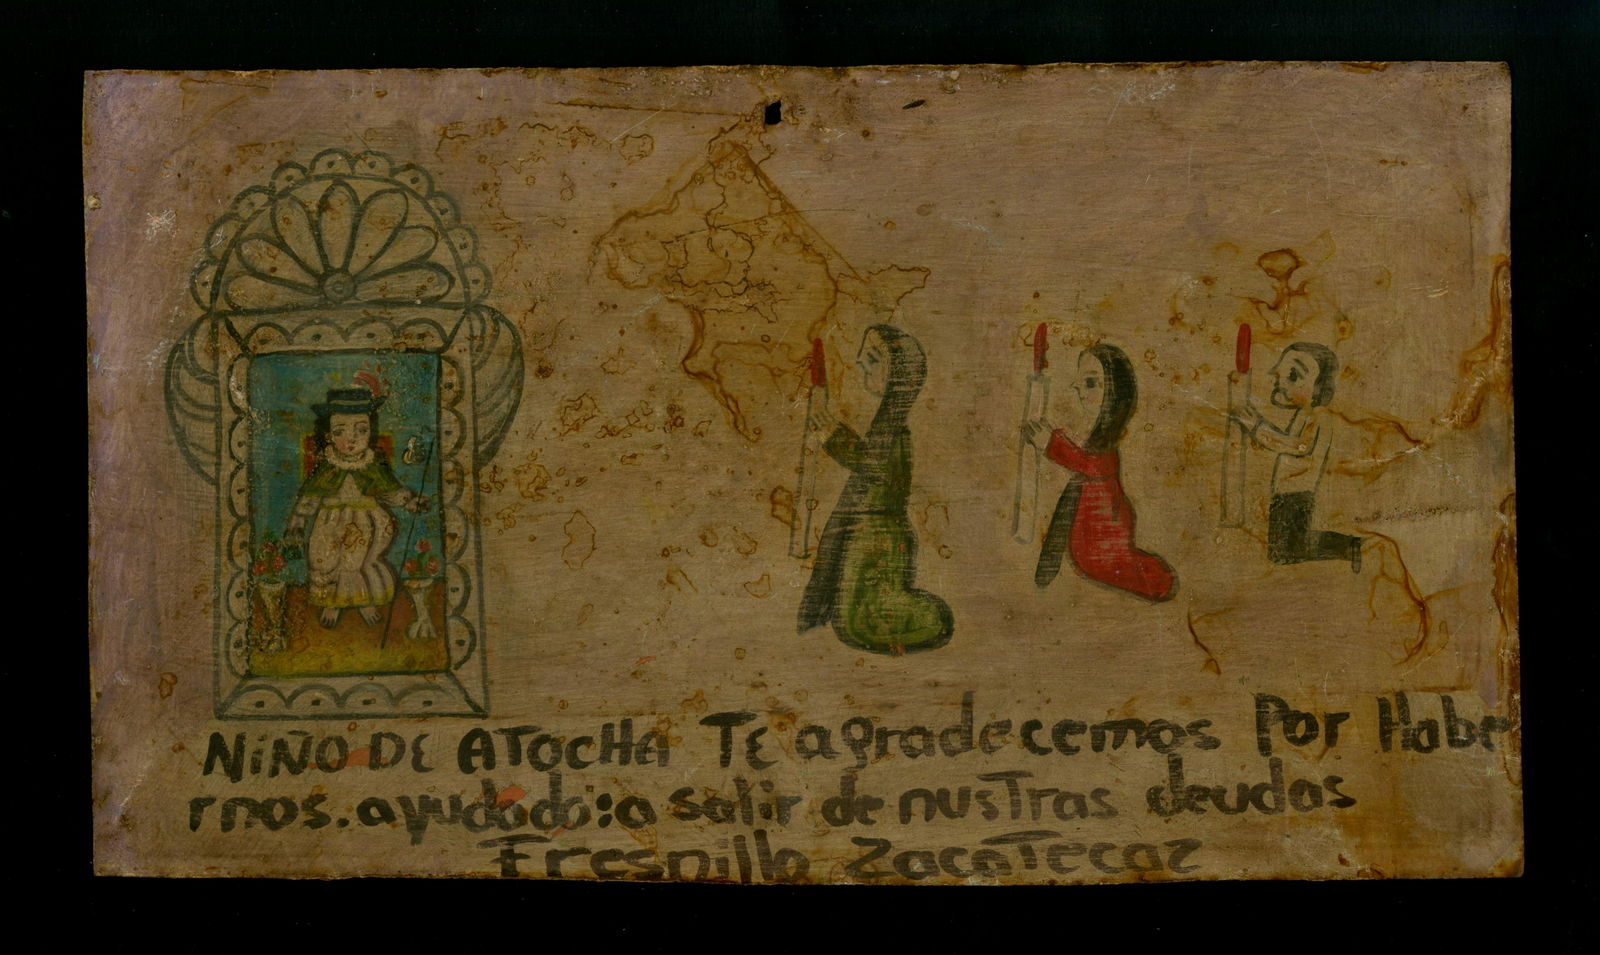 NiÑO DE ATOCHA TE agradecemos Por Habe
rnos. ayudado: a salir de nusTras deudas
Fresnillo ZacaTecaz